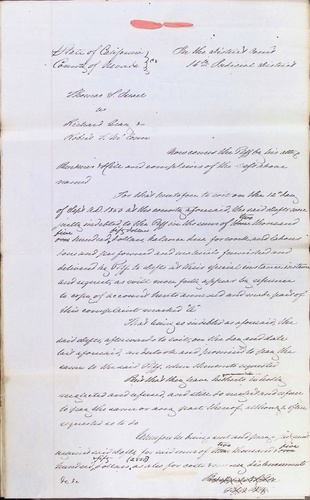 State of California } In the District Court
County of Nevada } ss 16th Judicial District
Thomas S.
vs
Richard &
Robert S. McCown
Now comes the Plff by his attys
and complains of the Defts above
named
For that heretofore to wit on the 12th day
of Sept A.D. 1860 at the county aforesaid, the said defts were
justly indebted to the Plff in the sum of two thousand
five
one hundred & fifty dollars balance due for work and labour
done and performed and materials furnished and
delivered by Plff to defts at their special instance
and request, as will more fully appear by reference
to copy of account hereto annexed and made part of
this complaint marked "A"
That being so indebted as aforesaid, the
said defts, afterwards to wit, on the day and date
last aforesaid, undertook and promised to pay the
same to the said Plff when thereunto requested
But that they have hitherto wholly
neglected and refused, and still do neglect and refuse
to pay the same or any part thereof, although often
requested so to do
Wherefore he brings suit and prays judgment
against said defts for said sum of two thousand five
hundred & fifty dollars, as also for costs disbursements
&c &c
Plffs Attys